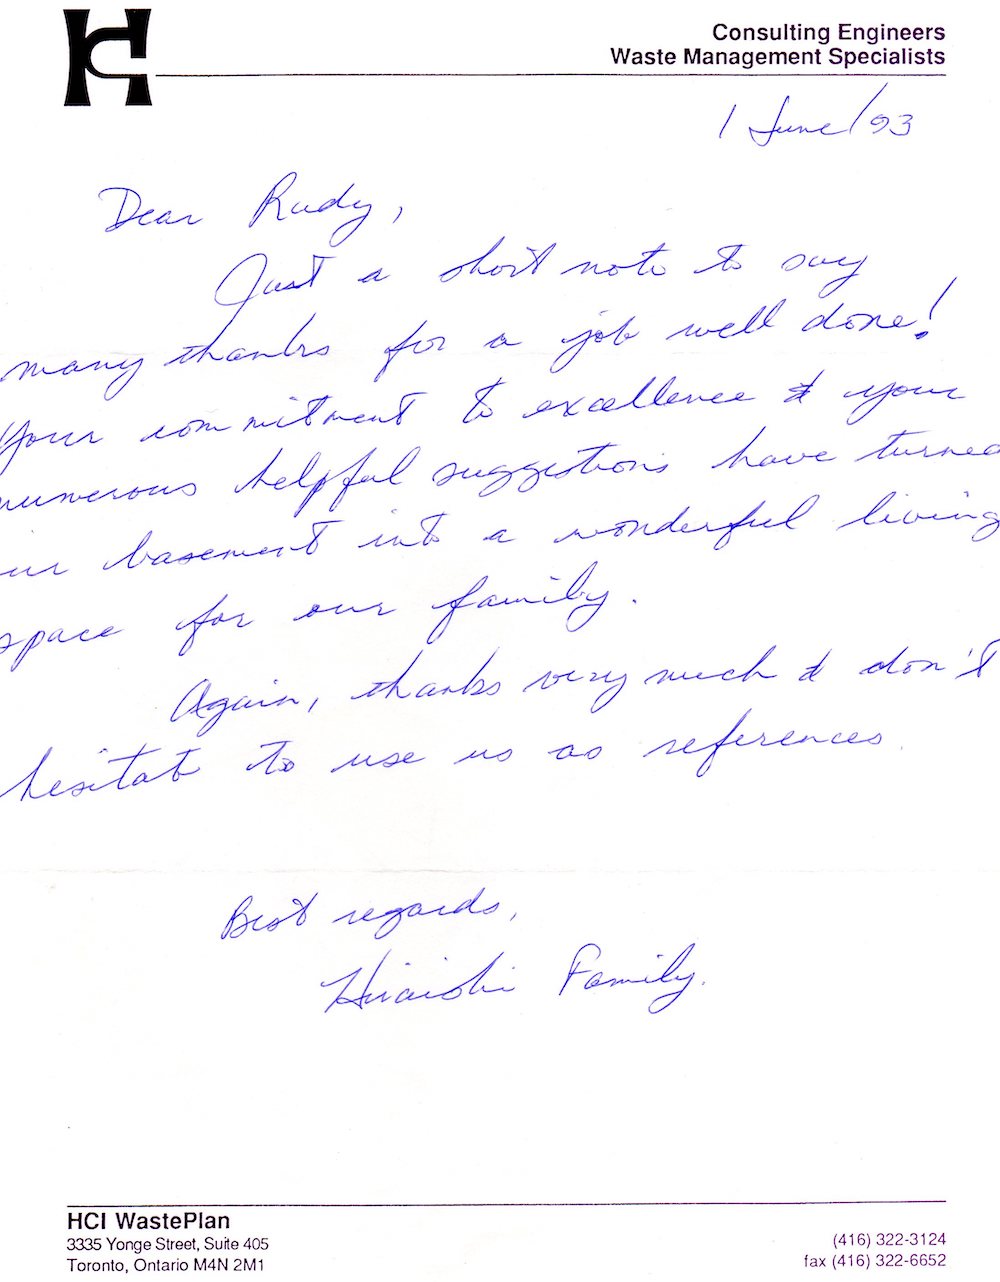 Consulting Engineers
Waste Management Specialists
1 June/93
Dear Rudy,
Just a short note to say
many thanks for a job well done!
Your commitment to excellence & your
numerous helpful suggestions have turned
our basement into a wonderful living
space for our family.
Again, thanks very much & don't
hesitate to use us as references.
Best regards,
Hiraishi Family.
HCI WastePlan
3335 Yonge Street, Suite 405
Toronto, Ontario M4N 2M1
(416) 322-3124
fax (416) 322-6652